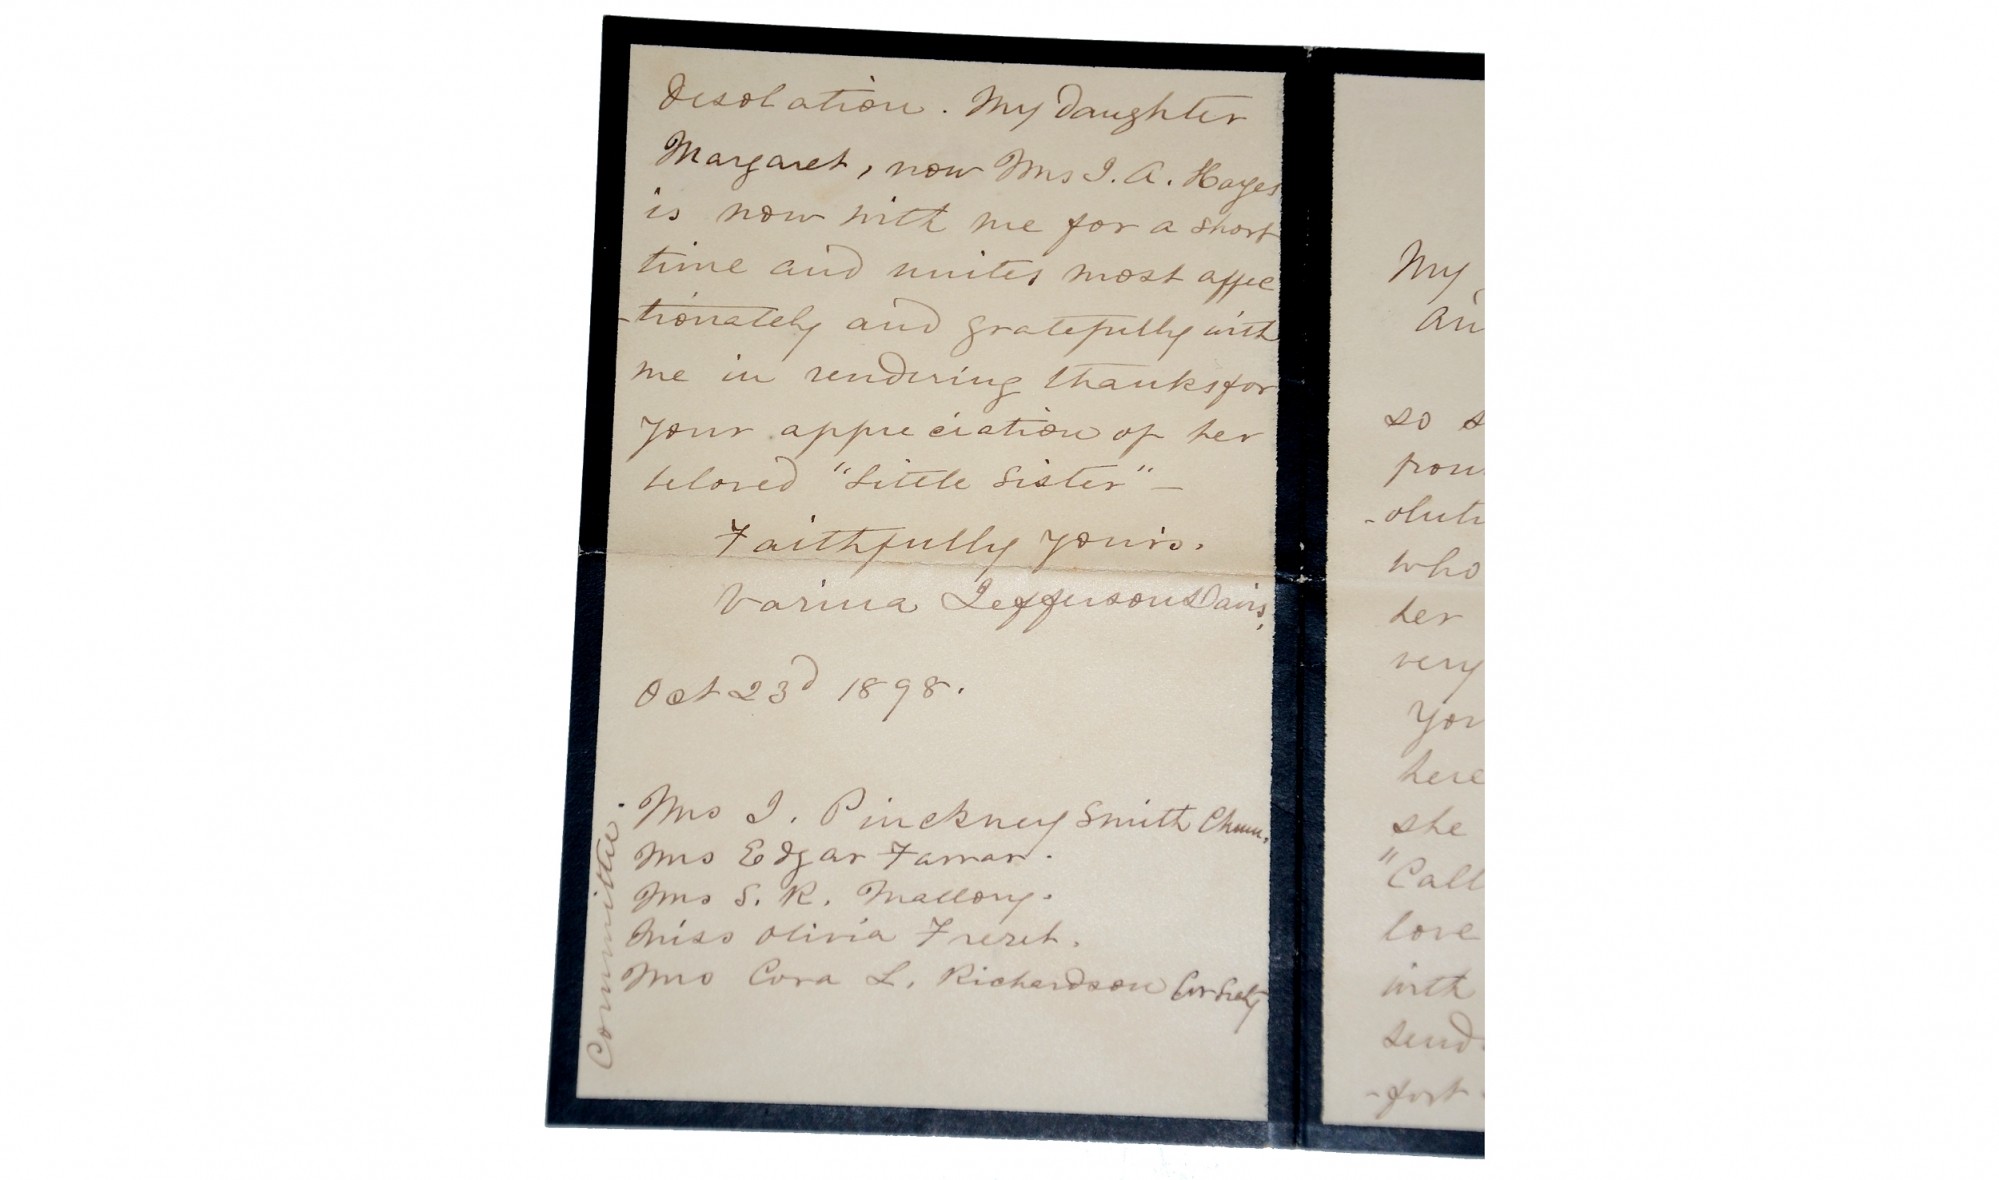 desolation. My daughter
Margaret, now Mrs J. A. Hayes
is now with me for a short
time and unites most affec
-tionately and gratefully with
me in rendering thanks for
your appreciation of her
beloved "Little Sister" —
Faithfully yours.
Varina Jefferson Davis,
Oct 23d 1898.
Committee.
Mrs J. Pinckney Smith Chmn.
Mrs Edgar Farrar.
Mrs S. R. Mallory.
Miss Olivia Freret.
Mrs Cora L. Richardson Cor Secty
My
so s
-oluti
who
her
very
you
here
she
"Call
love
with
send
-fort